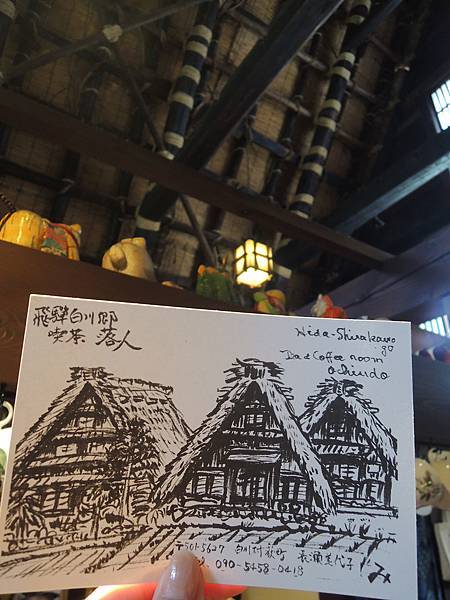 飛騨白川郷
喫茶 落人
Hida-Shirakawa
go
Coffee room
Ochiudo
〒501-5627 白川村荻町 長瀬美代子
090-5458-0418